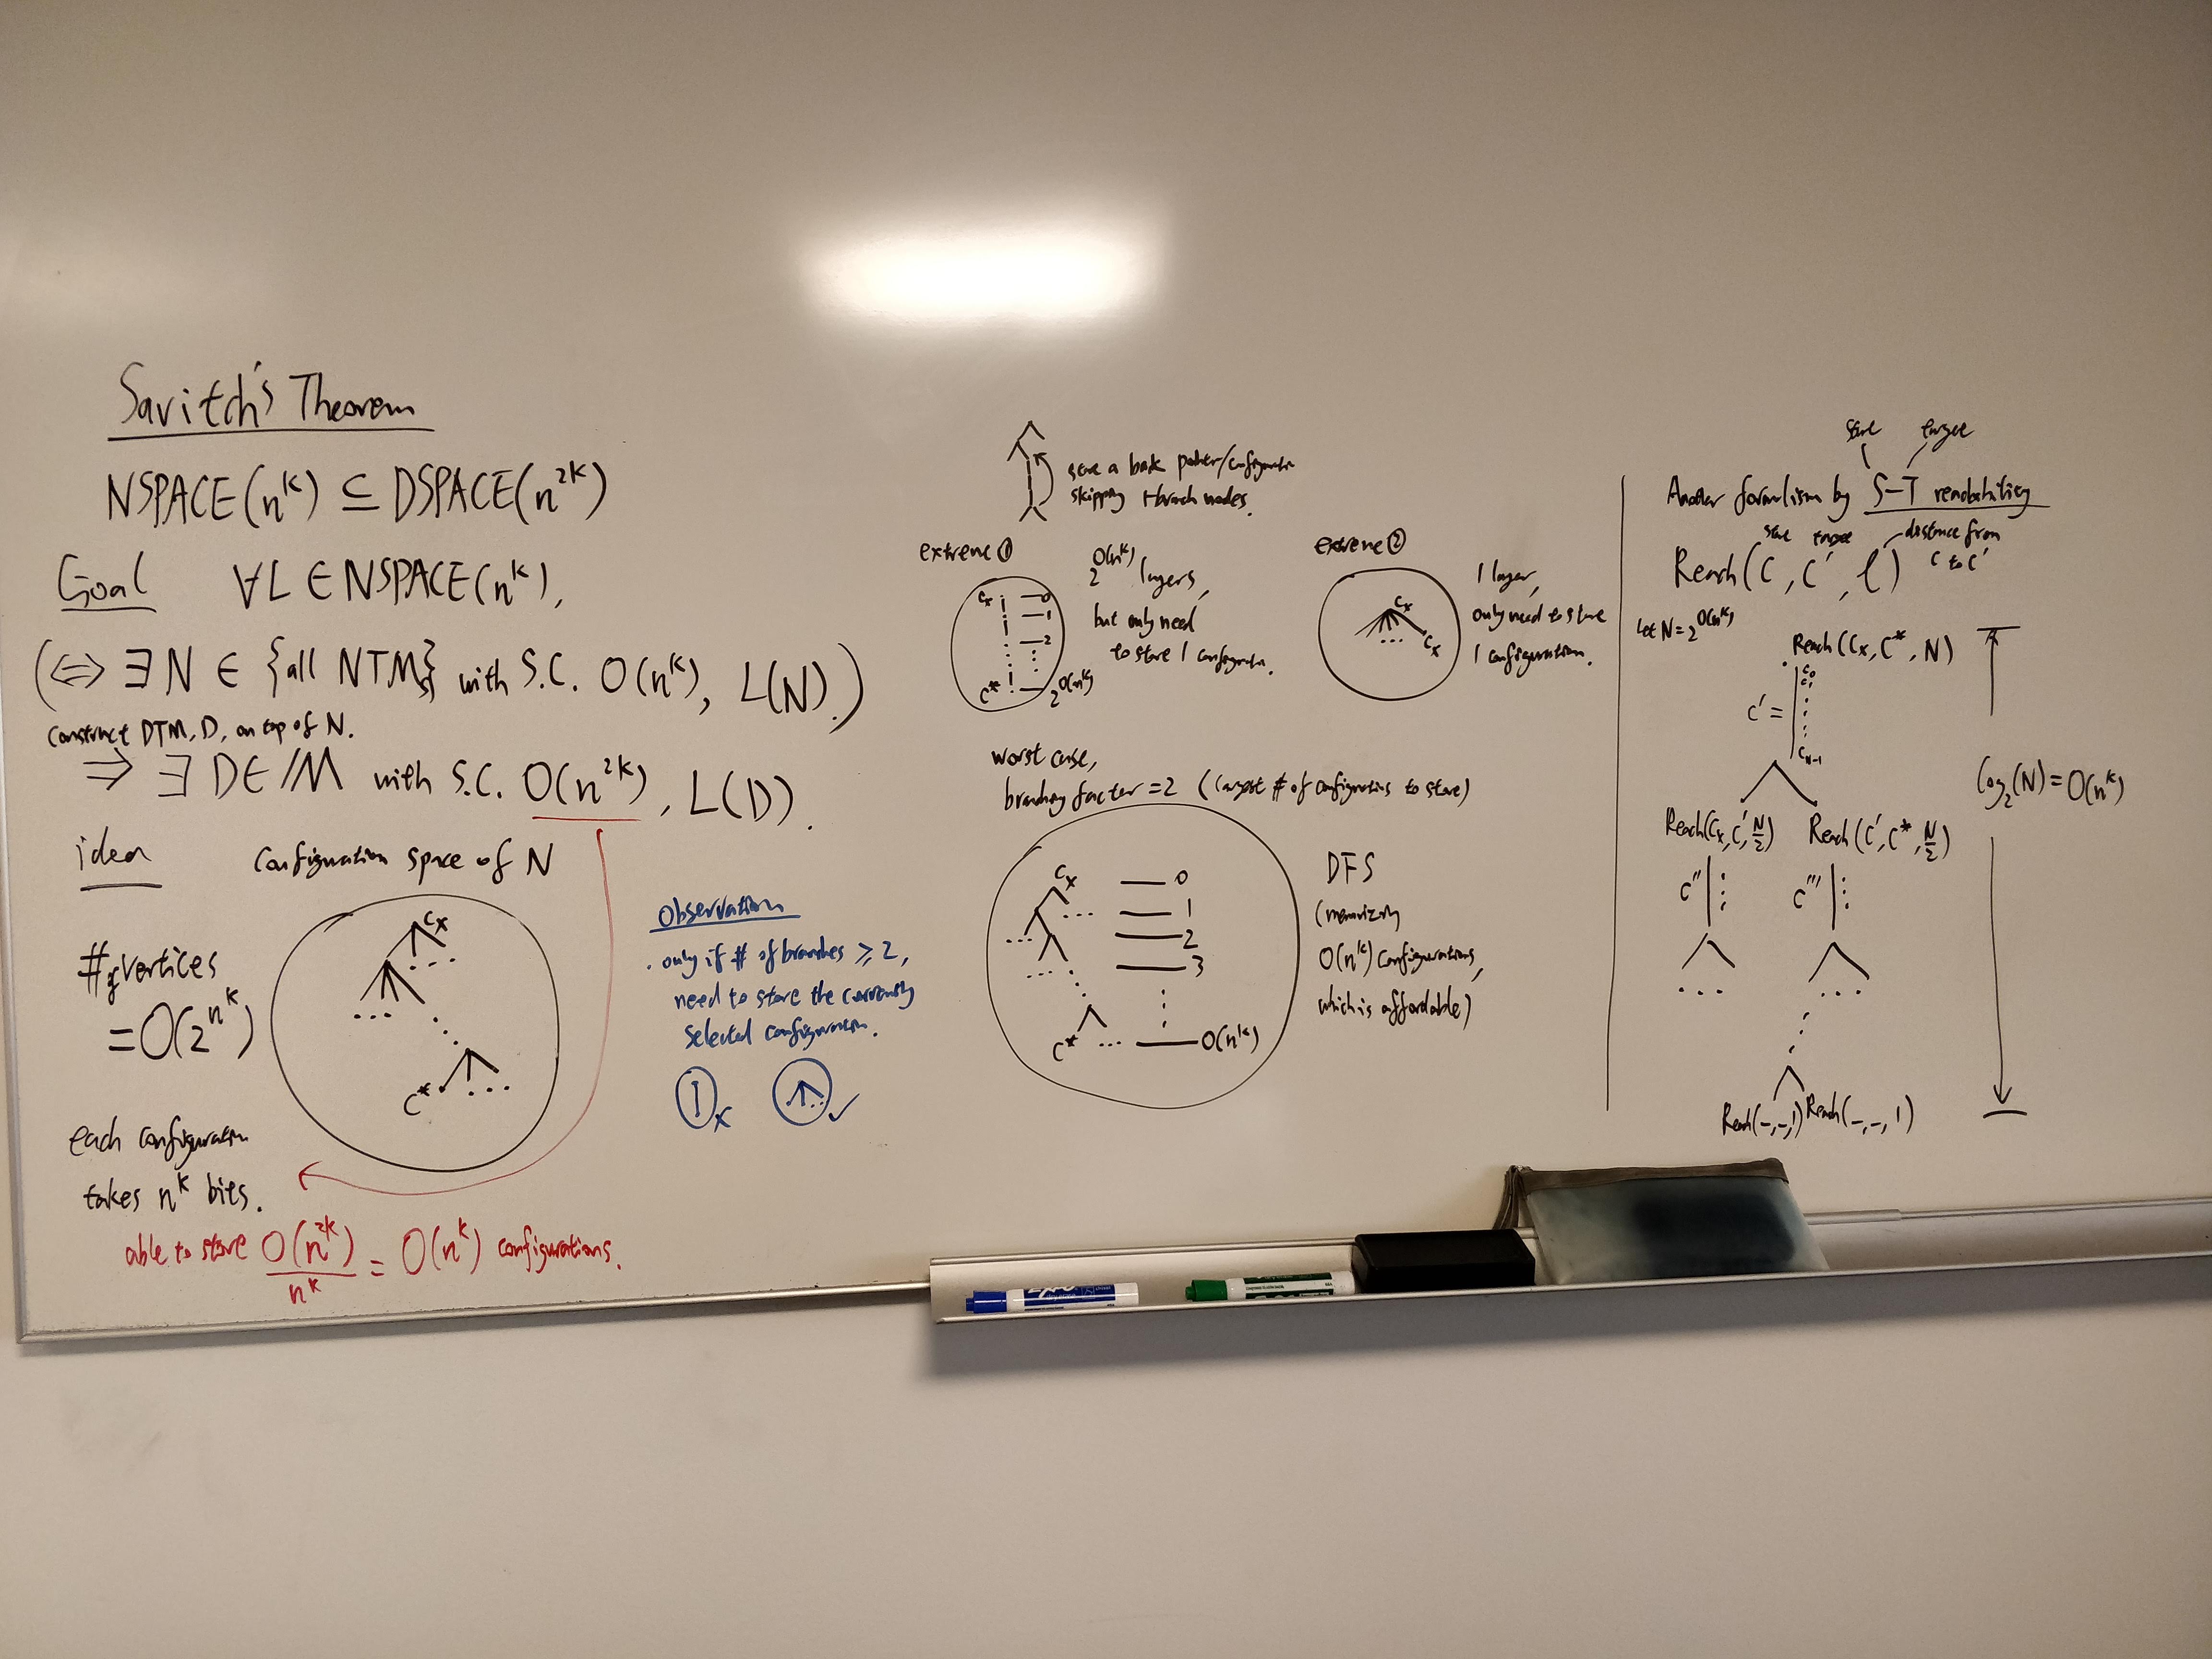 Savitch's Theorem
NSPACE(n^k) ⊆ DSPACE(n^2k)
Goal ∀L ∈ NSPACE(n^k),
(⇔ ∃N ∈ {all NTMs} with S.C. O(n^k), L(N).)
Construct DTM, D, on top of N.
⇒ ∃ D ∈ /M with S.C. O(n^2k), L(D).
idea configuration space of N
# of vertices
= O(2^n^k)
Cx
...
...
C* ...
each configuration
takes n^k bits.
able to store O(n^2k)/n^k = O(n^k) configurations.
Observation
. only if # of branches ≥ 2,
need to store the currently
selected configuration.
x ✓
store a back pointer/configuration
skipping 1-branch nodes.
extreme ①
Cx 0
1
2
C* 2^O(n^k)
2^O(n^k) layers,
but only need
to store 1 configuration.
extreme ②
Cx
...
Cx
1 layer,
only need to store
1 configuration.
worst case,
branching factor = 2 (largest # of configurations to store)
Cx 0
... 1
... 2
... 3
C* ... O(n^k)
DFS
(memorizing
O(n^k) configurations,
which is affordable)
start target
Another formalism by S-T reachability
start target distance from
Reach(C, C', ℓ) C to C'
Let N = 2^O(n^k)
Reach(Cx, C*, N)
C' = C0
C1
CN-1
log2(N) = O(n^k)
Reach(Cx, C', N/2) Reach(C', C*, N/2)
C'' C'''
... ...
Reach(-,-,1) Reach(-,-,1)
EXPO